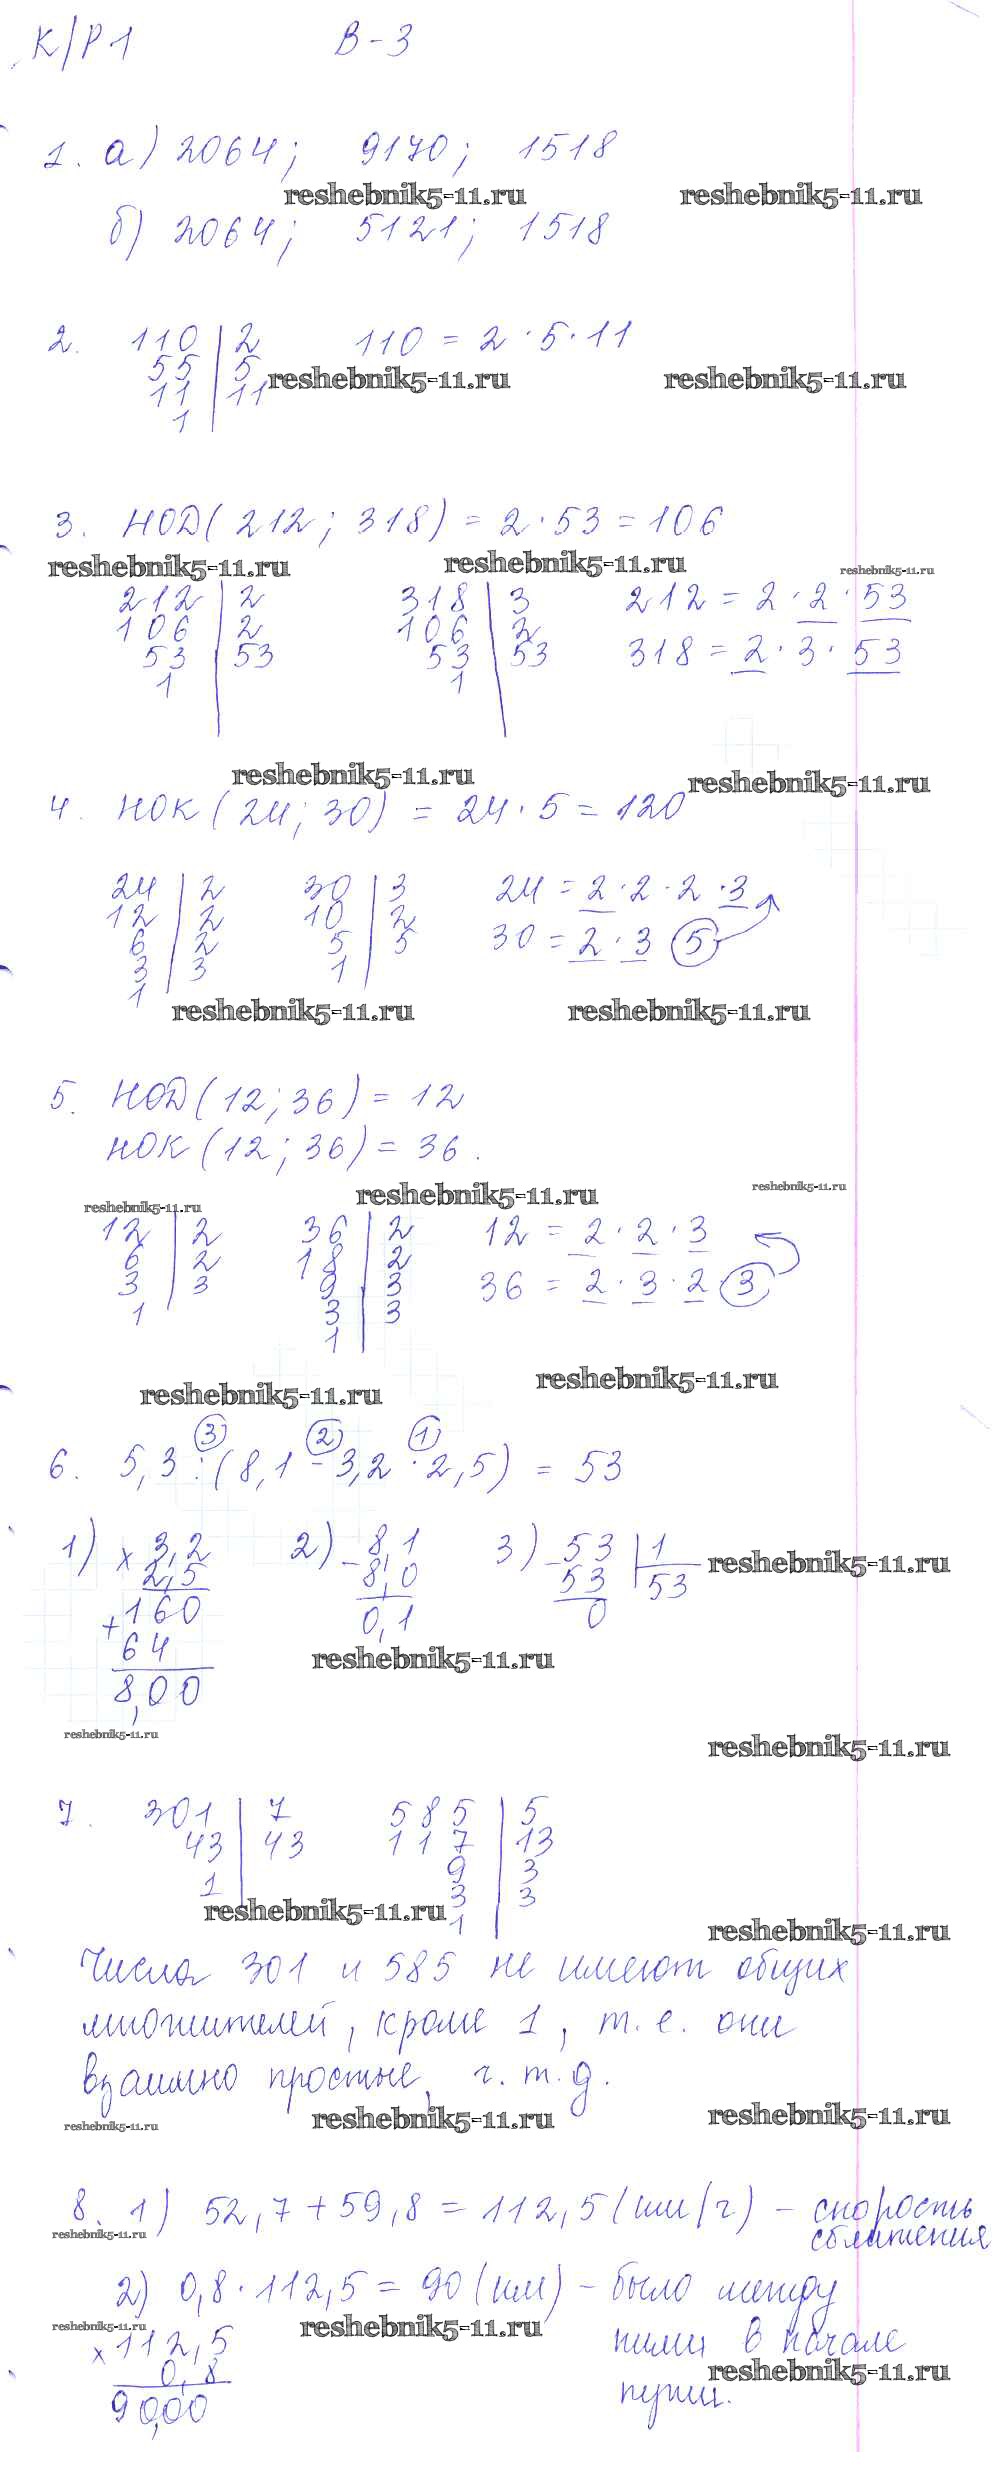 К/Р 1 В-3
1. а) 2064; 9170; 1518
reshebnik5-11.ru reshebnik5-11.ru
б) 2064; 5121; 1518
2. 110 | 2 110 = 2 · 5 · 11
55 | 5
reshebnik5-11.ru reshebnik5-11.ru
11 | 11
1
3. НОД( 212; 318) = 2 · 53 = 106
reshebnik5-11.ru reshebnik5-11.ru reshebnik5-11.ru
212 | 2 318 | 3 212 = 2 · 2 · 53
106 | 2 106 | 2
53 | 53 53 | 53 318 = 2 · 3 · 53
1 1
reshebnik5-11.ru reshebnik5-11.ru
4. НОК (24; 30) = 24 · 5 = 120
24 | 2 30 | 3 24 = 2 · 2 · 2 · 3
12 | 2 10 | 2
6 | 2 5 | 5 30 = 2 · 3 5
3 | 3 1
1
reshebnik5-11.ru reshebnik5-11.ru
5. НОД (12; 36) = 12
НОК (12; 36) = 36.
reshebnik5-11.ru reshebnik5-11.ru reshebnik5-11.ru
12 | 2 36 | 2 12 = 2 · 2 · 3
6 | 2 18 | 2
3 | 3 9 | 3 36 = 2 · 3 · 2 · 3
1 3 | 3
1
reshebnik5-11.ru reshebnik5-11.ru
3 2 1
6. 5,3 : (8,1 - 3,2 · 2,5) = 53
1) × 3,2 2) - 8,1 3) - 53 | 1
2,5 8,0 53 | 53
reshebnik5-11.ru
+ 160 0,1 0
64
reshebnik5-11.ru
8,00
reshebnik5-11.ru reshebnik5-11.ru
7. 301 | 7 585 | 5
43 | 43 117 | 13
1 9 | 3
3 | 3
reshebnik5-11.ru
1
reshebnik5-11.ru
Числа 301 и 585 не имеют общих
множителей, кроме 1, т. е. они
взаимно простые, ч. т. д.
reshebnik5-11.ru reshebnik5-11.ru reshebnik5-11.ru
8. 1) 52,7 + 59,8 = 112,5 (км/ч) - скорость
reshebnik5-11.ru сближения
2) 0,8 · 112,5 = 90 (км) - было между
reshebnik5-11.ru reshebnik5-11.ru
× 112,5 ними в начале
0,8 reshebnik5-11.ru
90,00 пути.